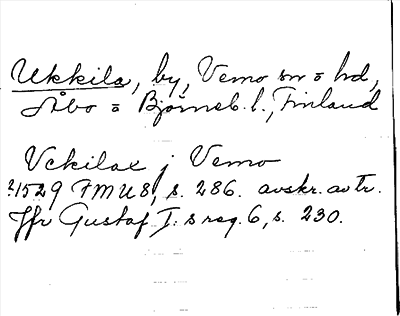 Ukkila, by, Vemo sn o hd,
Åbo o Björneb. l., Finland
Vckilax j Vemo
1529 FMU 8, s. 286. avskr. av tr.
Jfr Gustaf I:s reg. 6, s. 230.